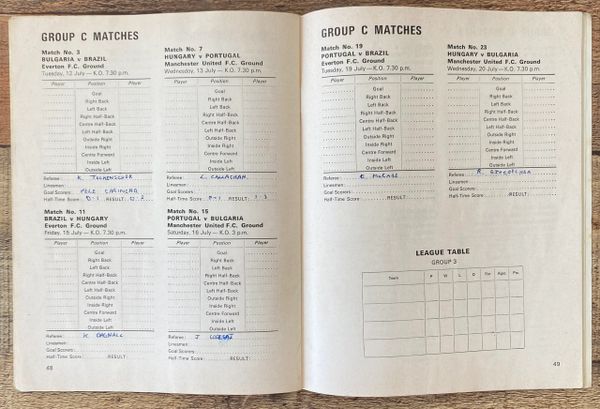 GROUP C MATCHES
Match No. 3
BULGARIA v BRAZIL
Everton F.C. Ground
Tuesday, 12 July—K.O. 7.30 p.m.
Player Position Player
Goal
Right Back
Left Back
Right Half-Back
Centre Half-Back
Left Half-Back
Outside Right
Inside Right
Centre Forward
Inside Left
Outside Left
Referee: K. TSCHENSCHER
Linesmen:
Goal Scorers: PELE GARINCHA
Half-Time Score: 0-1 RESULT: 0.2
Match No. 7
HUNGARY v PORTUGAL
Manchester United F.C. Ground
Wednesday, 13 July—K.O. 7.30 p.m.
Player Position Player
Goal
Right Back
Left Back
Right Half-Back
Centre Half-Back
Left Half-Back
Outside Right
Inside Right
Centre Forward
Inside Left
Outside Left
Referee: L. CALLAGHAN
Linesmen:
Goal Scorers:
Half-Time Score: 0-1 RESULT: 1-3
Match No. 11
BRAZIL v HUNGARY
Everton F.C. Ground
Friday, 15 July—K.O. 7.30 p.m.
Player Position Player
Goal
Right Back
Left Back
Right Half-Back
Centre Half-Back
Left Half-Back
Outside Right
Inside Right
Centre Forward
Inside Left
Outside Left
Referee: K. DAGNALL
Linesmen:
Goal Scorers:
Half-Time Score: RESULT:
Match No. 15
PORTUGAL v BULGARIA
Manchester United F.C. Ground
Saturday, 16 July—K.O. 3 p.m.
Player Position Player
Goal
Right Back
Left Back
Right Half-Back
Centre Half-Back
Left Half-Back
Outside Right
Inside Right
Centre Forward
Inside Left
Outside Left
Referee: J.
Linesmen:
Goal Scorers:
Half-Time Score: RESULT:
48
GROUP C MATCHES
Match No. 19
PORTUGAL v BRAZIL
Everton F.C. Ground
Tuesday, 19 July—K.O. 7.30 p.m.
Player Position Player
Goal
Right Back
Left Back
Right Half-Back
Centre Half-Back
Left Half-Back
Outside Right
Inside Right
Centre Forward
Inside Left
Outside Left
Referee: G. McCABE
Linesmen:
Goal Scorers:
Half-Time Score: RESULT:
Match No. 23
HUNGARY v BULGARIA
Manchester United F.C. Ground
Wednesday, 20 July—K.O. 7.30 p.m.
Player Position Player
Goal
Right Back
Left Back
Right Half-Back
Centre Half-Back
Left Half-Back
Outside Right
Inside Right
Centre Forward
Inside Left
Outside Left
Referee: R.
Linesmen:
Goal Scorers:
Half-Time Score: RESULT:
LEAGUE TABLE
GROUP 3
Team P W L D For Agst. Pts.
49